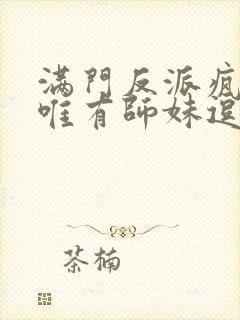 滿門反派瘋
唯有師妹逗
茶楠